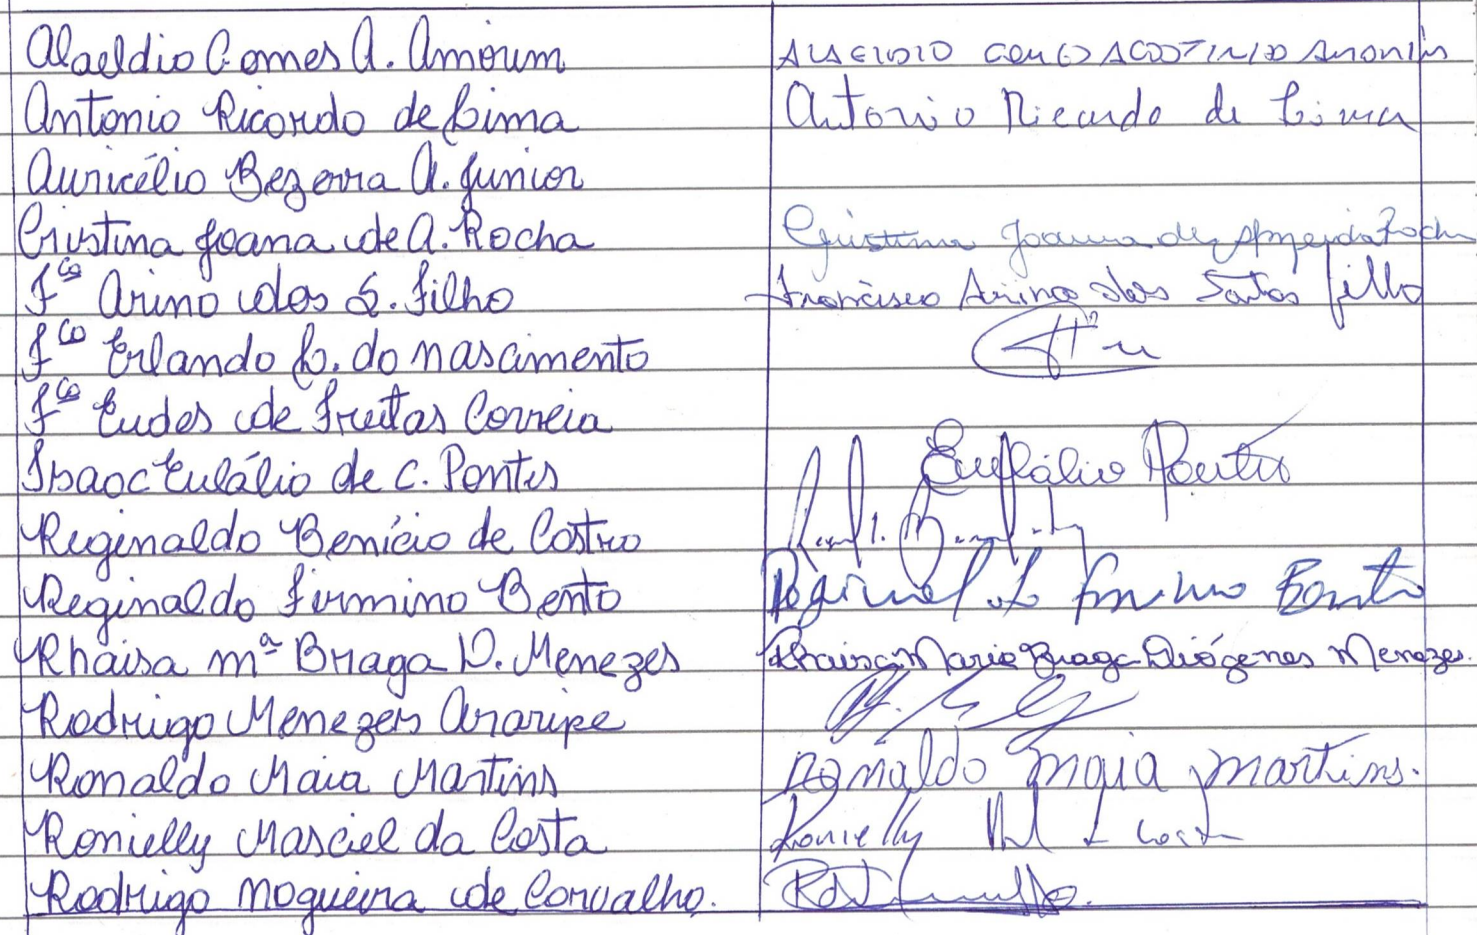 Alaeldio Gomes A. Amorim
Antonio Ricardo de Lima Antonio Ricardo de Lima
Auricélio Bezerra A. Junior
Cristina Joana de A. Rocha Cristina Joana de Almeida Rocha
Fco Arino dos S. Filho Francisco Arino dos Santos Filho
Fco Erlando L. do Nascimento
Fco Eudes de Freitas Correia
Isaac Eulálio de C. Pontes Eulálio Pontes
Reginaldo Benício de Castro
Reginaldo Firmino Bento Reginaldo Firmino Bento
Rhaisa Mª Braga D. Menezes Rhaisa Maria Braga Diógenes Menezes.
Rodrigo Menezes Araripe
Ronaldo Maia Martins Ronaldo Maia Martins.
Ronielly Masciel da Costa Ronielly
Rodrigo Nogueira de Carvalho.